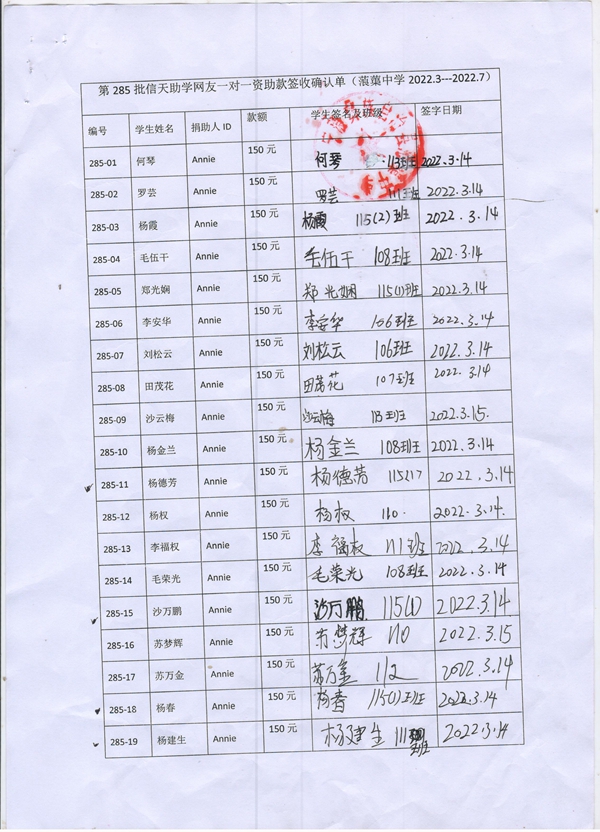 第 285 批信天助学网友一对一资助款签收确认单（蒗蕖中学 2022.3---2022.7）
编号 学生姓名 捐助人 ID 款额 学生签名及班级 签字日期
285-01 何琴 Annie 150 元 何琴 113班 2022.3.14
285-02 罗芸 Annie 150 元 罗芸 111班 2022.3.14
285-03 杨霞 Annie 150 元 杨霞 115(2)班 2022.3.14
285-04 毛伍干 Annie 150 元 毛伍干 108班 2022.3.14
285-05 郑光娴 Annie 150 元 郑光娴 115(1)班 2022.3.14
285-06 李安华 Annie 150 元 李安华 106班 2022.3.14
285-07 刘松云 Annie 150 元 刘松云 106班 2022.3.14
285-08 田茂花 Annie 150 元 田茂花 107班 2022.3.14
285-09 沙云梅 Annie 150 元 沙云梅 113班 2022.3.15.
285-10 杨金兰 Annie 150 元 杨金兰 108班 2022.3.14
285-11 杨德芳 Annie 150 元 杨德芳 2022.3.14
285-12 杨权 Annie 150 元 杨权 110. 2022.3.14.
285-13 李福权 Annie 150 元 李福权 111班 2022.3.14
285-14 毛荣光 Annie 150 元 毛荣光 108班 2022.3.14
285-15 沙万鹏 Annie 150 元 沙万鹏 115(1) 2022.3.14
285-16 苏梦辉 Annie 150 元 苏梦辉 110 2022.3.15
285-17 苏万金 Annie 150 元 苏万金 112 2022.3.14
285-18 杨春 Annie 150 元 杨春 115(1)班 2022.3.14
285-19 杨建生 Annie 150 元 杨建生 111班 2022.3.14